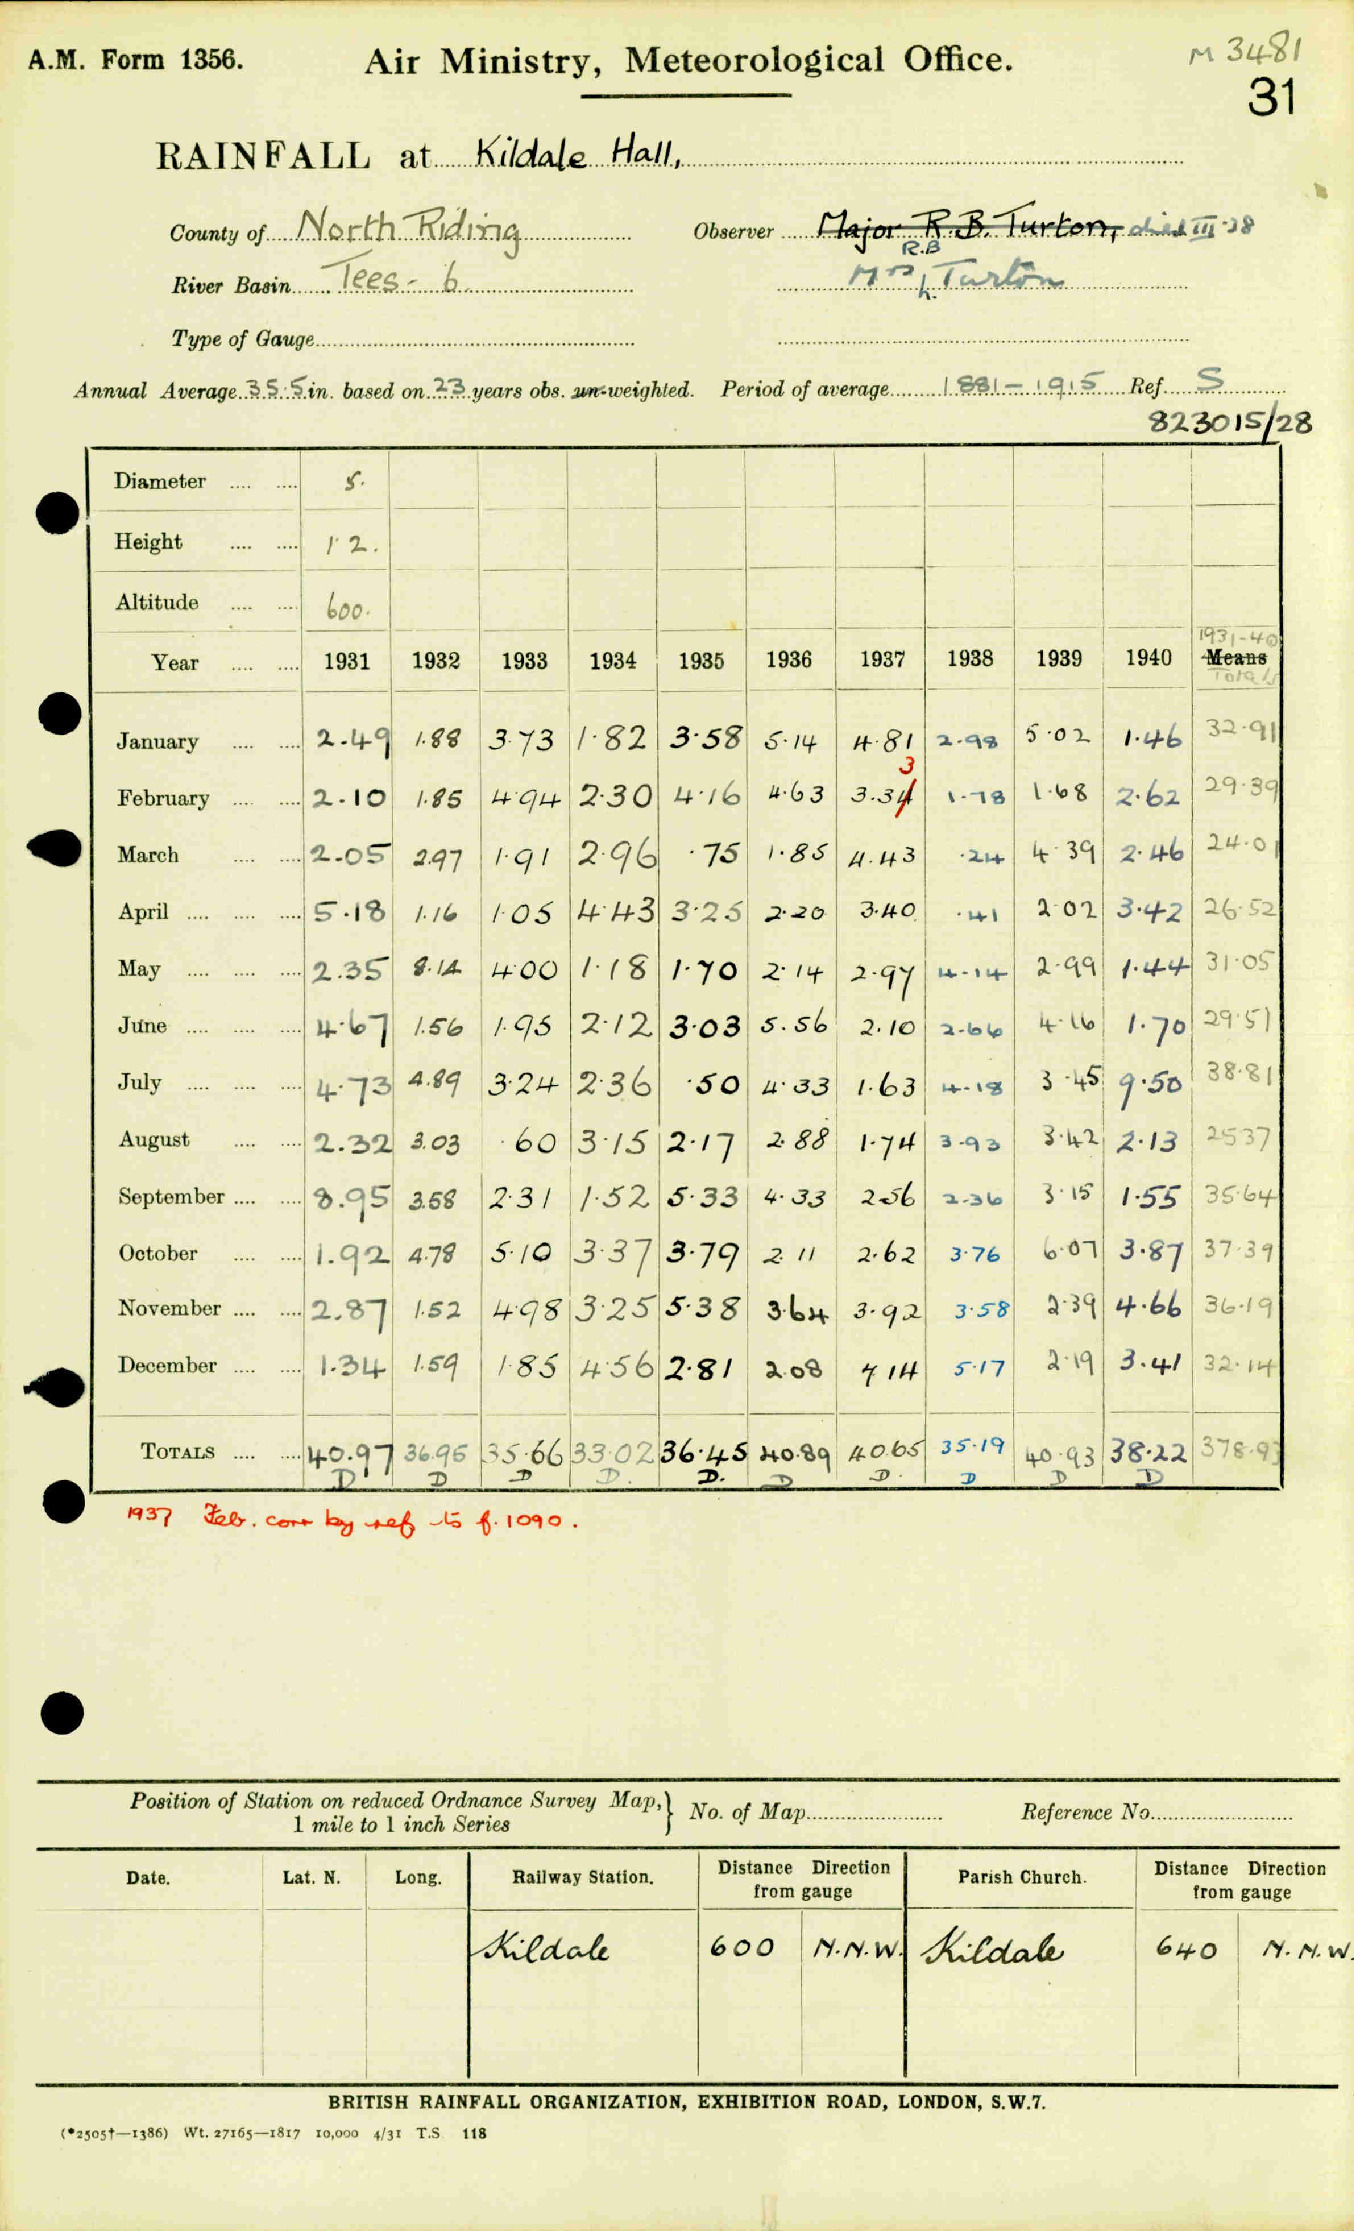 A.M. Form 1356. Air Ministry, Meteorological Office. M 3481
31
RAINFALL at Kildale Hall,
County of North Riding Observer Major R.B. Turton, died III·38
River Basin Tees - 6 Mrs R.B L. Turton
Type of Gauge
Annual Average 35·5 in. based on 23 years obs. un-weighted. Period of average 1881-1915 Ref. S
823015/28
Diameter .... .... 5.
Height .... .... 1' 2.
Altitude .... .... 600.
1931-40
Year .... .... 1931 1932 1933 1934 1935 1936 1937 1938 1939 1940 Means
Totals
January .... .... 2.49 1.88 3.73 1.82 3.58 5.14 4.81 2.98 5.02 1.46 32.91
3
February .... .... 2.10 1.85 4.94 2.30 4.16 4.63 3.34 1.78 1.68 2.62 29.39
March .... .... 2.05 2.97 1.91 2.96 .75 1.85 4.43 .24 4.39 2.46 24.01
April .... .... .... 5.18 1.16 1.05 4.43 3.25 2.20 3.40 .41 2.02 3.42 26.52
May .... .... .... 2.35 8.14 4.00 1.18 1.70 2.14 2.97 4.14 2.99 1.44 31.05
June .... .... .... 4.67 1.56 1.95 2.12 3.03 5.56 2.10 2.66 4.16 1.70 29.51
July .... .... .... 4.73 4.89 3.24 2.36 .50 4.33 1.63 4.18 3.45 9.50 38.81
August .... .... 2.32 3.03 .60 3.15 2.17 2.88 1.74 3.93 3.42 2.13 25.37
September .... .... 8.95 3.58 2.31 1.52 5.33 4.33 2.56 2.36 3.15 1.55 35.64
October .... .... 1.92 4.78 5.10 3.37 3.79 2.11 2.62 3.76 6.07 3.87 37.39
November .... .... 2.87 1.52 4.98 3.25 5.38 3.64 3.92 3.58 2.39 4.66 36.19
December .... .... 1.34 1.59 1.85 4.56 2.81 2.08 7.14 5.17 2.19 3.41 32.14
TOTALS .... .... 40.97 36.95 35.66 33.02 36.45 40.89 40.65 35.19 40.93 38.22 378.93
D D D D. D. D D. D D D
1937 Feb. corr by ref to f. 1090.
Position of Station on reduced Ordnance Survey Map, } No. of Map Reference No.
1 mile to 1 inch Series
Date. Lat. N. Long. Railway Station. Distance Direction from gauge Parish Church. Distance Direction from gauge
Kildale 600 N.N.W. Kildale 640 N.N.W.
BRITISH RAINFALL ORGANIZATION, EXHIBITION ROAD, LONDON, S.W.7.
(*2505†—1386) Wt. 27165—1817 10,000 4/31 T.S. 118